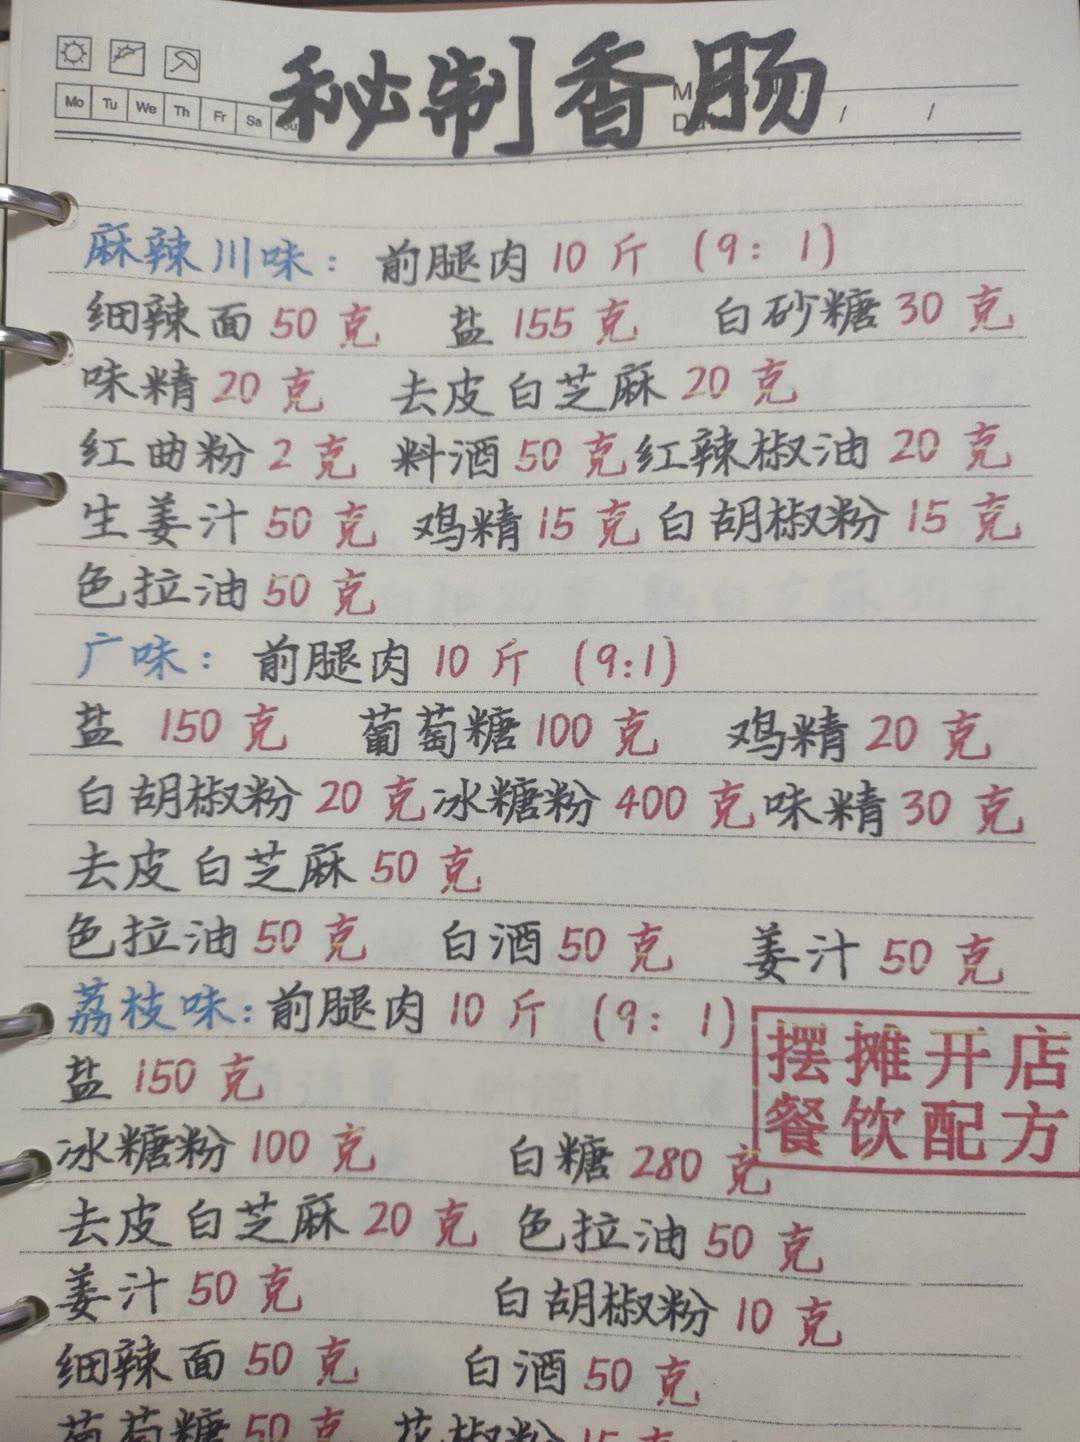 秘制香肠
Mo Tu We Th Fr Sa
麻辣川味：前腿肉10斤（9：1）
细辣面50克 盐155克 白砂糖30克
味精20克 去皮白芝麻20克
红曲粉2克 料酒50克 红辣椒油20克
生姜汁50克 鸡精15克 白胡椒粉15克
色拉油50克
广味：前腿肉10斤（9:1）
盐150克 葡萄糖100克 鸡精20克
白胡椒粉20克 冰糖粉400克 味精30克
去皮白芝麻50克
色拉油50克 白酒50克 姜汁50克
荔枝味：前腿肉10斤（9：1）
盐150克
冰糖粉100克 白糖280克
去皮白芝麻20克 色拉油50克
姜汁50克 白胡椒粉10克
细辣面50克 白酒50克
葡萄糖50克 花椒粉15克
摆摊开店
餐饮配方